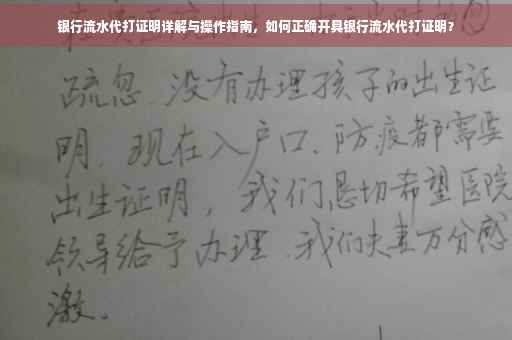 银行流水代打证明详解与操作指南，如何正确开具银行流水代打证明？
疏忽、没有办理孩子的出生证
明、现在入户口、防疫都需要
出生证明，我们恳切希望医院
领导给予办理、我们夫妻万分感
激。